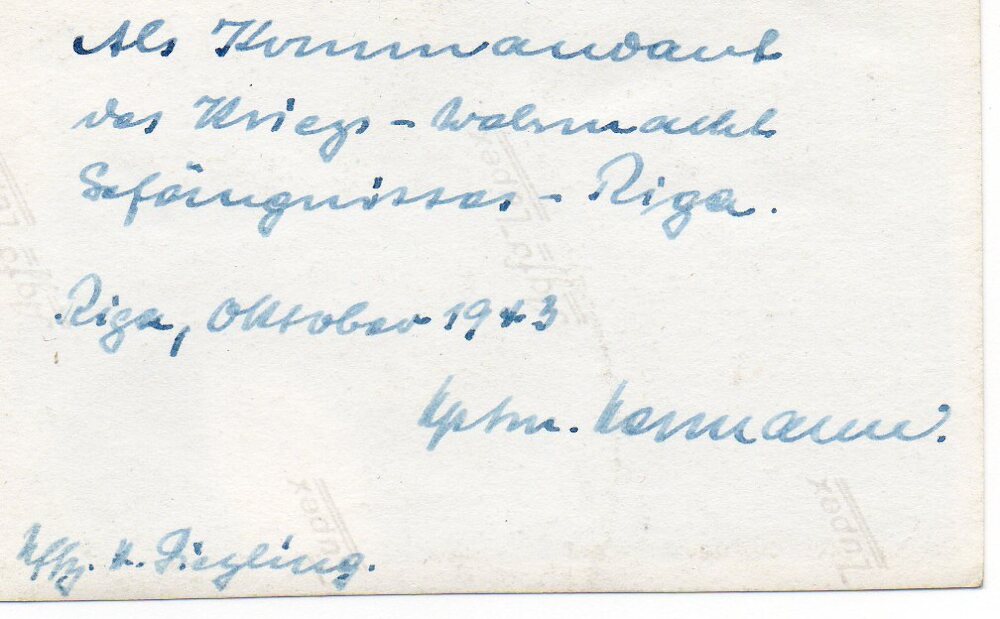 Als Kommandant
des Kriegs-Wehrmacht
Gefängnisses - Riga.
Riga, Oktober 1943
Hptm.
Uffz.
Lupex
Lupex
Lupex